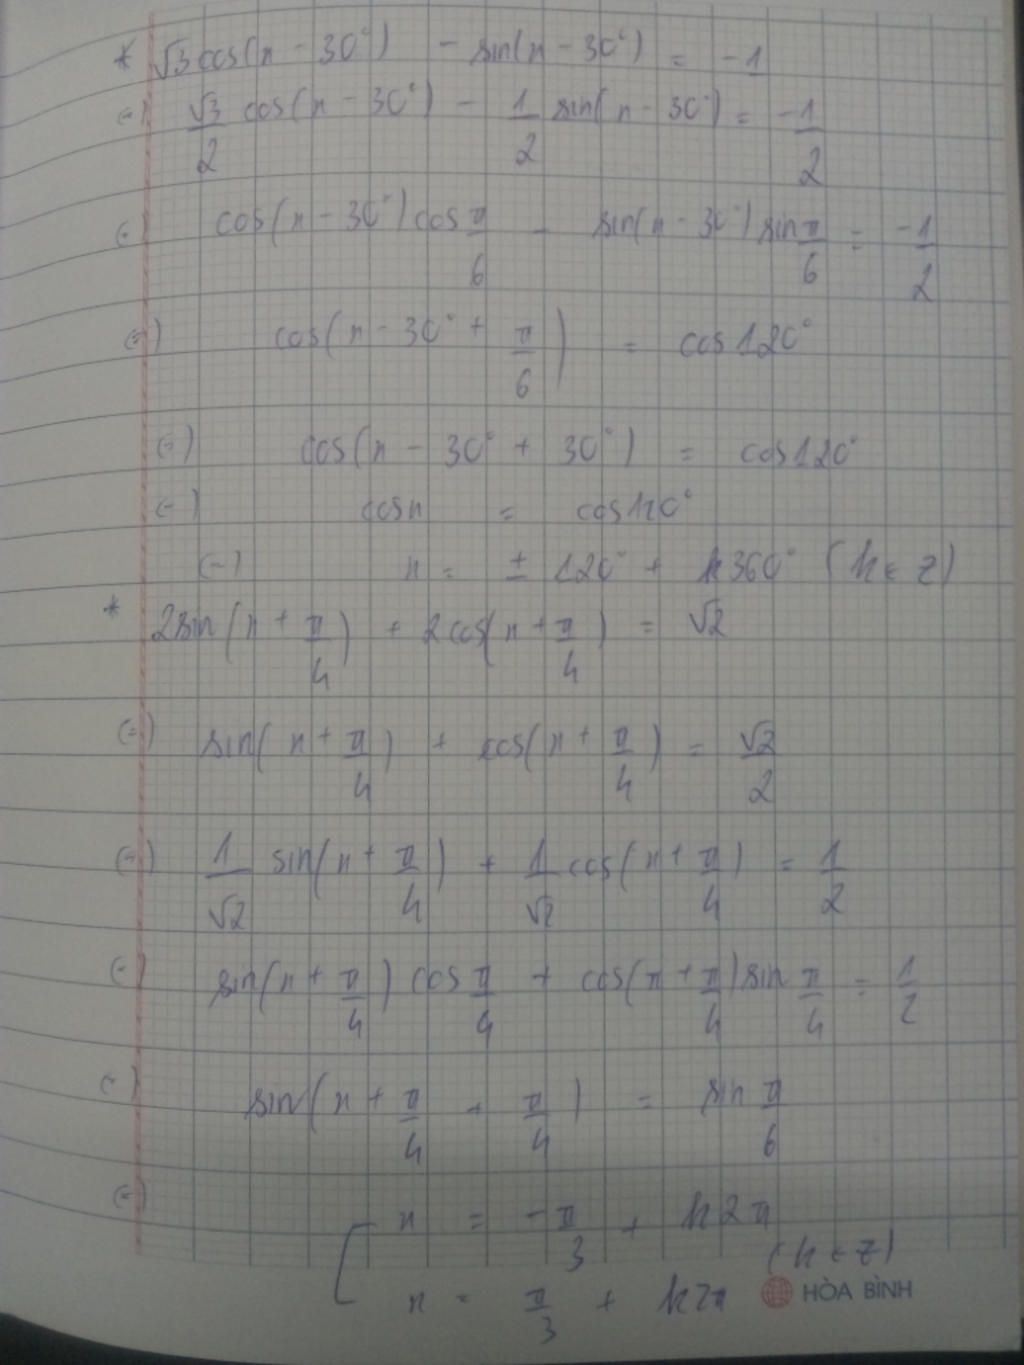 * √3 cos(x - 30°) - sin(x - 30°) = -1
(=) √3/2 cos(x - 30°) - 1/2 sin(x - 30°) = -1/2
(=) cos(x - 30°) cos π/6 - sin(x - 30°) sin π/6 = -1/2
(=) cos(x - 30° + π/6) = cos 120°
(=) cos(x - 30° + 30°) = cos 120°
(=) cos x = cos 120°
(=) x = ± 120° + k360° (k ∈ Z)
* 2sin(x + π/4) + 2cos(x + π/4) = √2
(=) sin(x + π/4) + cos(x + π/4) = √2/2
(=) 1/√2 sin(x + π/4) + 1/√2 cos(x + π/4) = 1/2
(=) sin(x + π/4) cos π/4 + cos(x + π/4) sin π/4 = 1/2
(=) sin(x + π/4 + π/4) = sin π/6
(=) [ x = -π/3 + k2π
(k ∈ Z)
x = π/3 + k2π
HÒA BÌNH